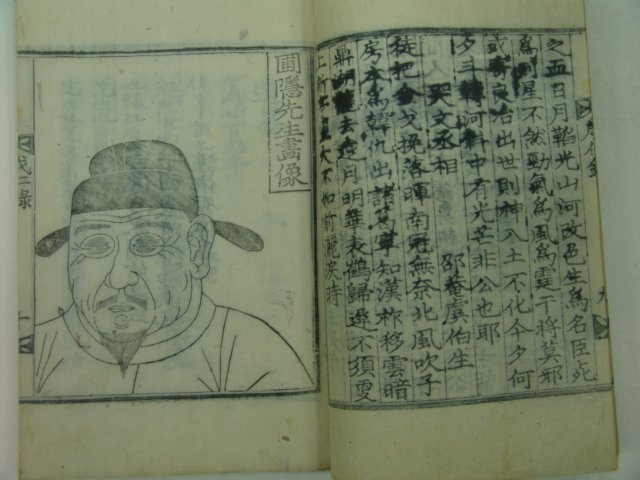 之五日月韜光山河改色生爲名臣死
爲列星不然勁氣爲風爲霆干將莫邪
或寄良冶出世則神入土不化今夕何
夕斗轉河斜中有光芒非公也耶
哭文丞相　邵菴虞伯生
徒把金戈挽落暉南冠無奈北風吹子
房本爲韓仇出諸葛寧知漢祚移雲暗
鼎湖龍去遠月明華表鶴歸遲不須更
上新亭望大不如前灑淚時
圃隱先生畫像
成仁錄